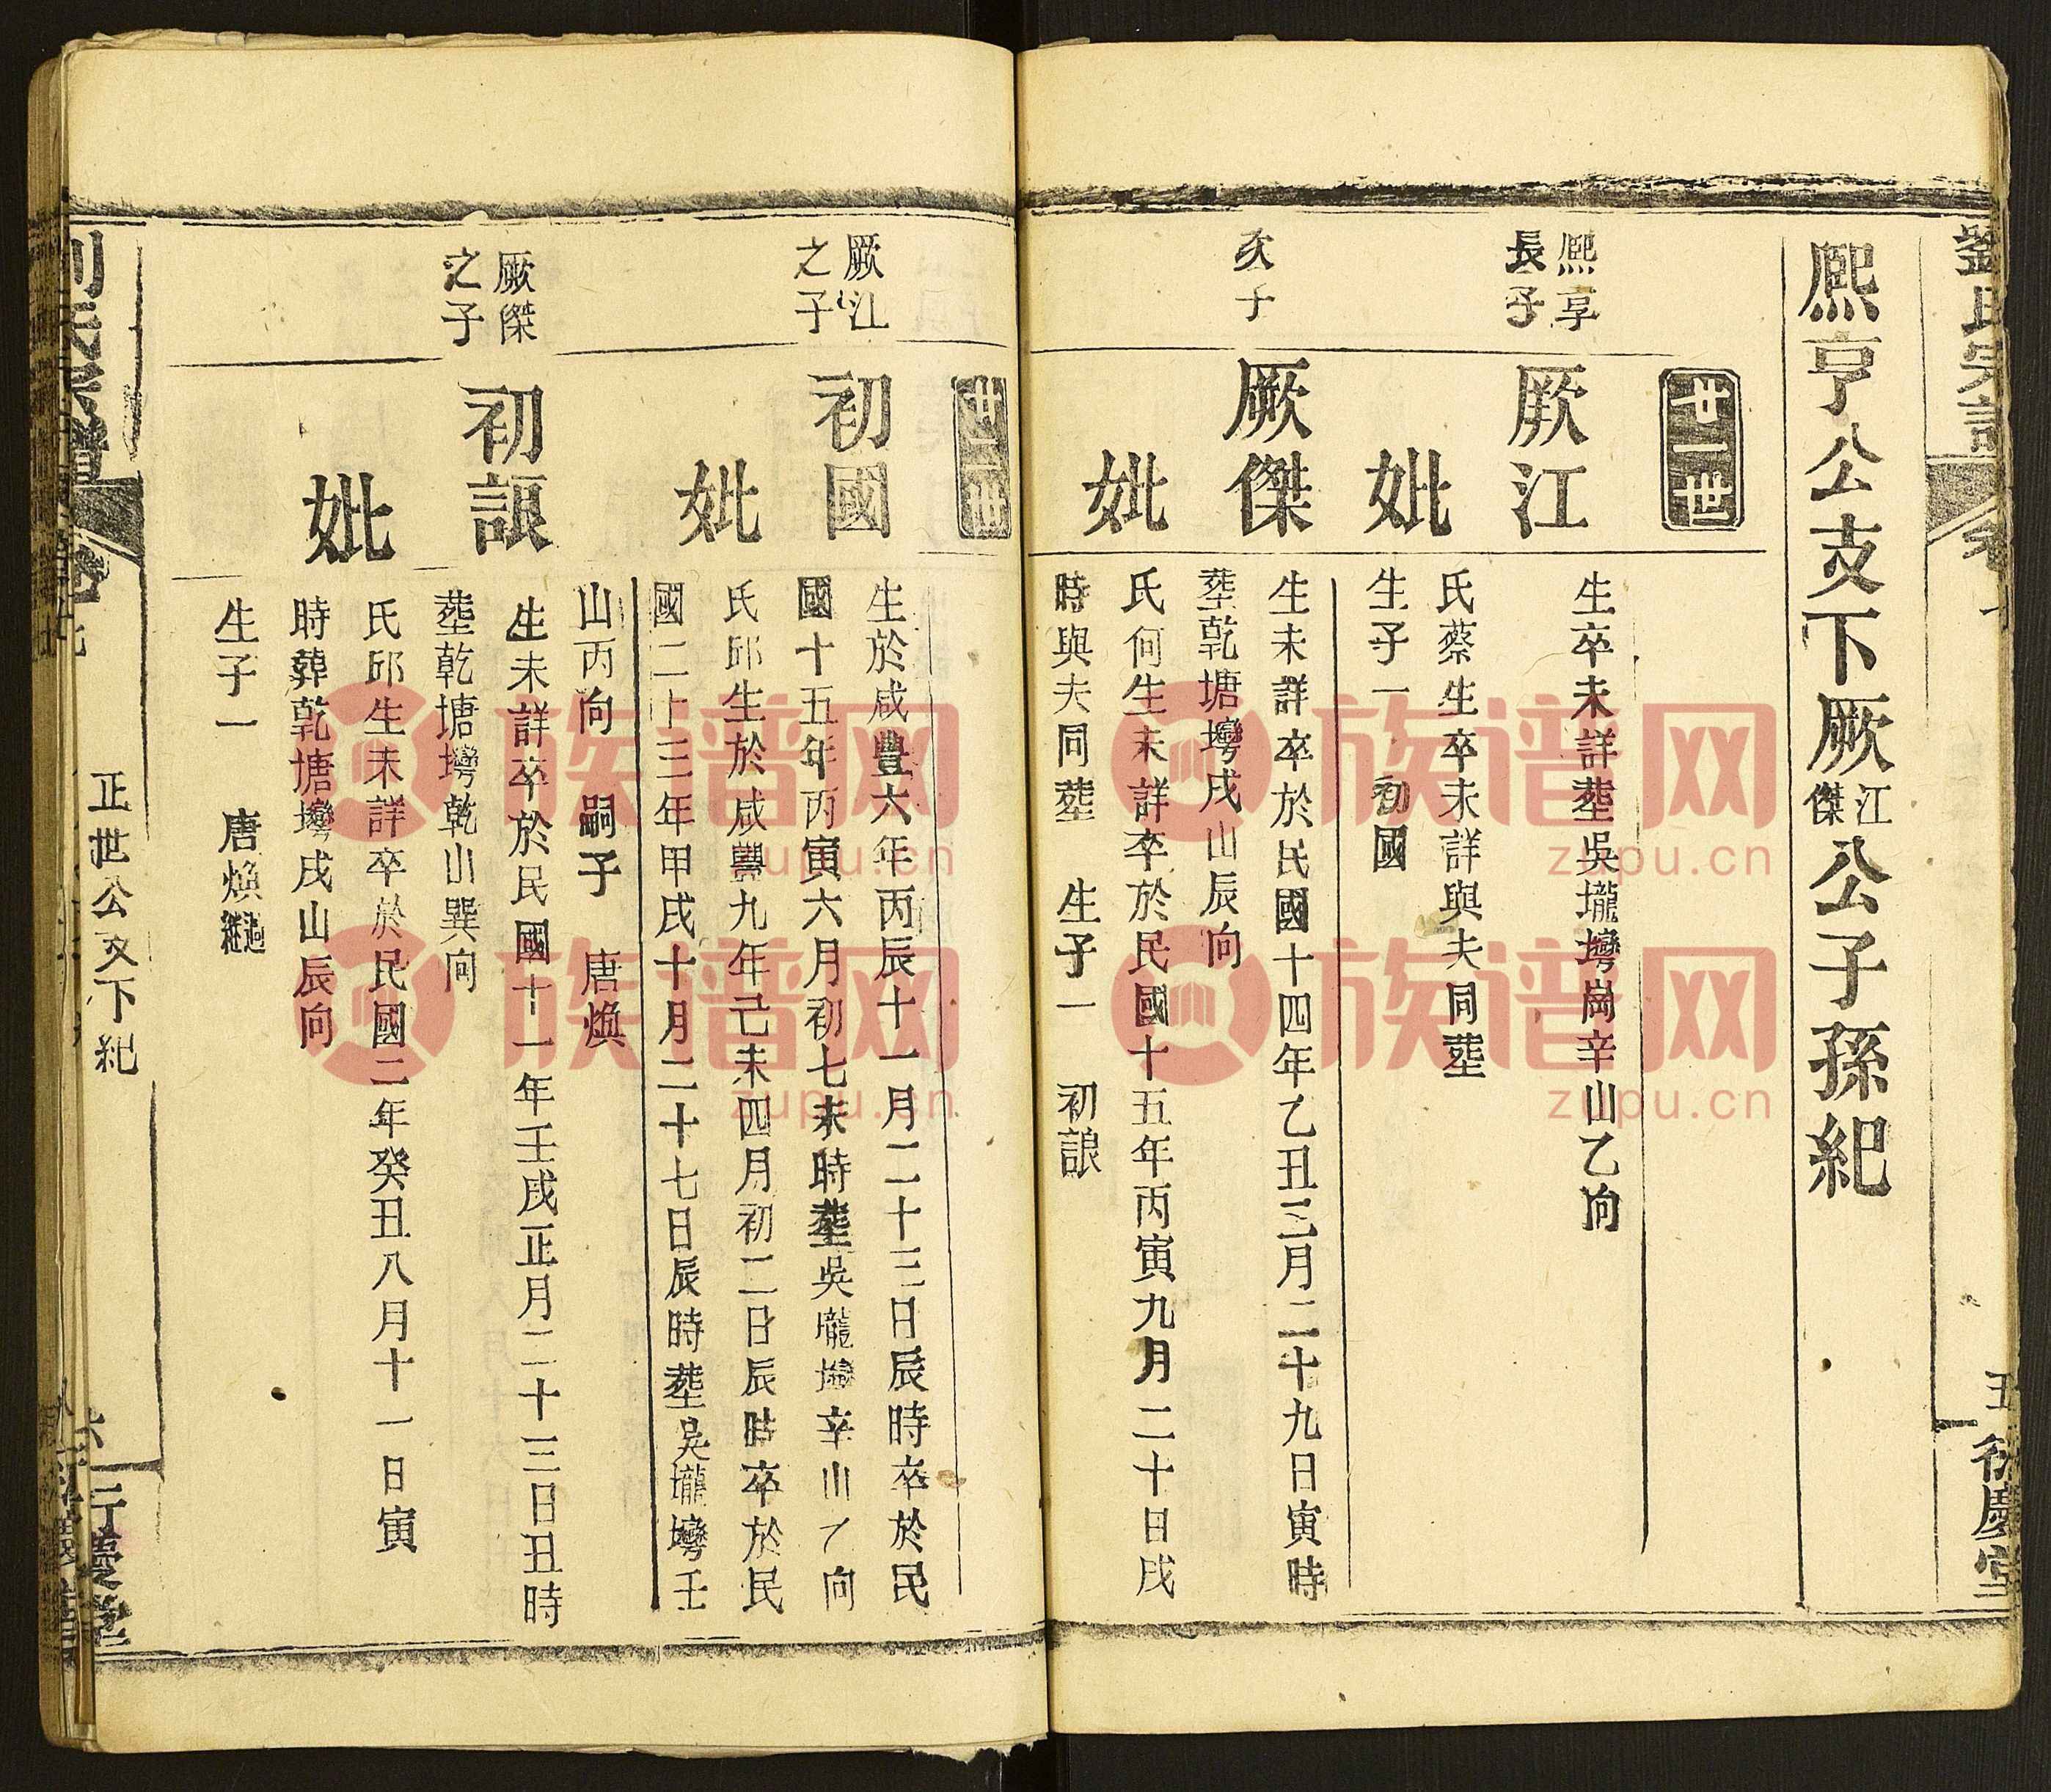 劉氏宗譜
卷
五
徐慶堂
熈亨公支下厥江傑公子孫紀
廿一世
熈享
長子
厥江
生卒未詳塟吳壠塆崗辛山乙向
妣
氏蔡生卒未詳與夫同塟
生子一 初國
次子
厥傑
生未詳卒於民國十四年乙丑三月二十九日寅時
塟乾塘塆戌山辰向
妣
氏何生未詳卒於民國十五年丙寅九月二十日戌
時與夫同塟 生子一 初詪
廿二世
厥江
之子
初國
生於咸豐六年丙辰十一月二十三日辰時卒於民
國十五年丙寅六月初七未時塟吳壠塆辛山乙向
妣
氏邱生於咸豐九年己未四月初二日辰時卒於民
國二十三年甲戌十月二十七日辰時塟吳壠塆壬
山丙向 嗣子 唐煥
厥傑
之子
初詪
生未詳卒於民國十一年壬戌正月二十三日丑時
塟乾塘塆乾山巽向
妣
氏邱生未詳卒於民國二年癸丑八月十一日寅
時葬乾塘塆戌山辰向
生子一 唐煥過繼
正世公支下紀
族谱网
zupu.cn
族谱网
zupu.cn
族谱网
zupu.cn
族谱网
zupu.cn